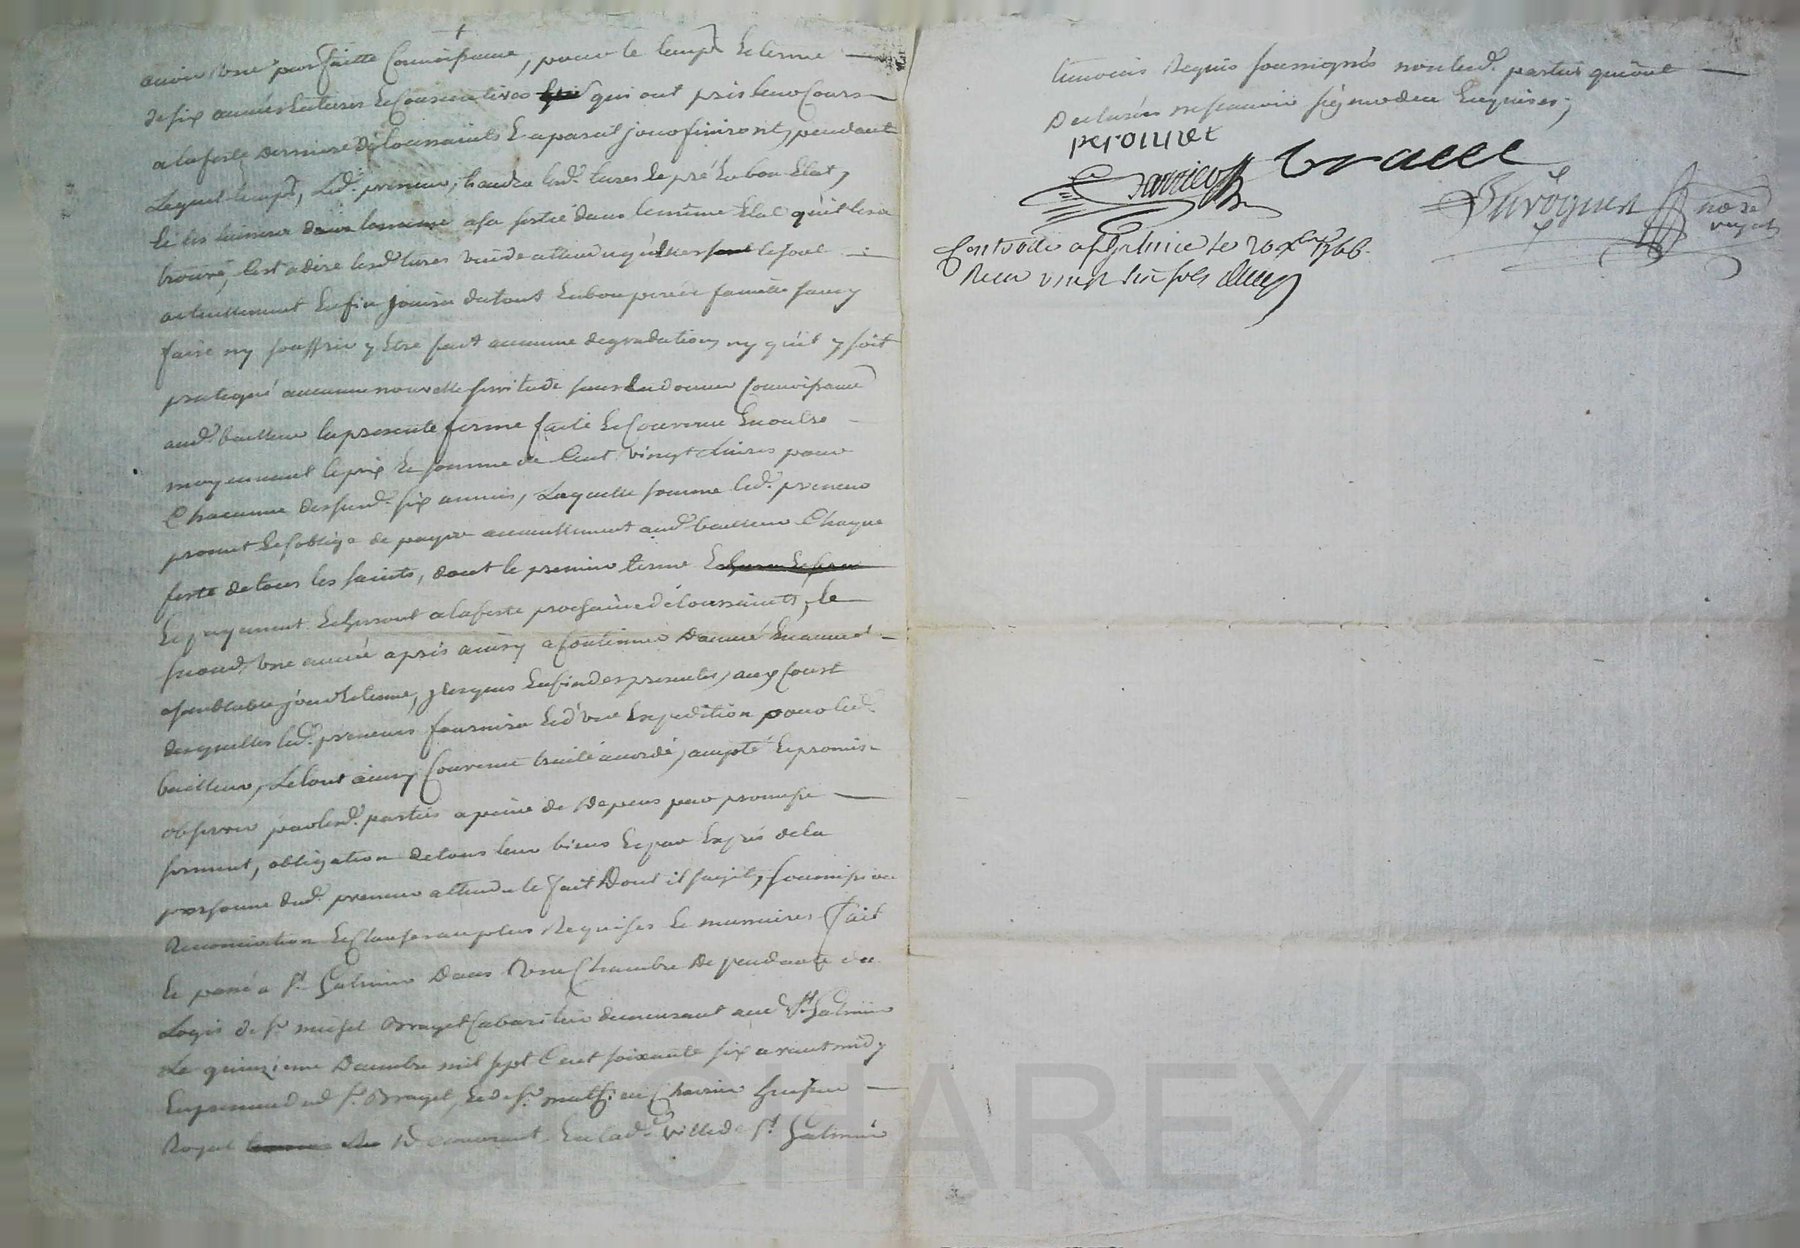 avoir une parfaitte Connoissance, pour le temps Et terme
de six années Entieres Et Consecutives qui ont pris leur Cours
a la feste derniere de toussaints Et a pareil jour finiront, pendant
Lequel temps, Led. preneur, tiendra lesd. terres Et pré En bon Etat,
Et les laissera a sa sortie dans le même Etat qu'il les a
trouvé, C'est a dire lesd. terres vuide attendu qu'elles le sont
actuellement Enfin jouira du tout En bon pere de famille sans y
faire ny souffrir y Etre fait aucunne degradation, ny qu'il y soit
pratiqué aucunne nouvelle servitude sans En donner Connoissance
aud. bailleur la presente ferme faite Et Convenue En outre
moyennant le prix Et somme de Cent vingt Livres pour
Chacunne desd. six années, Laquelle somme led. preneur
promet Et s'oblige de payer annuellement aud. bailleur Chaque
feste de tous les saints, dont le premier terme
Et payement Echerront a la feste prochaine de toussaints, le
second Une année apres ainsy a Continuer D'année En année
a semblable jour Et terme, aux Coust
desquelles led. preneur fournira Led. une Expedition pour led.
bailleur, Le tout ainsy Convenu traité accordé, accepté Et promis
observer par lesd. parties a peine de Depens par promesse
serment, obligation de tous leur biens Et par Exprés de la
personne dud. preneur attendu le fait Dont il s'agit, soumission
Renonciation Et Clauses au plus Requises Et necessaires fait
Et passé a St Galmier Dans Une Chambre Dependante du
Logis de Sr. michel Brayet Cabaretier demeurant aud. St Galmier
Le quinzieme Decembre mil sept Cent soixante six avant midy
En presence dud. Sr. Brayet, Et de Sr. mathieu Chavin huissier
Royal Demeurant En lad. Ville de St Galmier
temoins Requis soussignés non led. parties qui ont
Declarés ne scavoir signer de ce Enquises;
peronnet
Brayet
Duroquet
no.re
royal
Controllé a St Galmier le 20 xbre 1766.
Recu vingt six sols